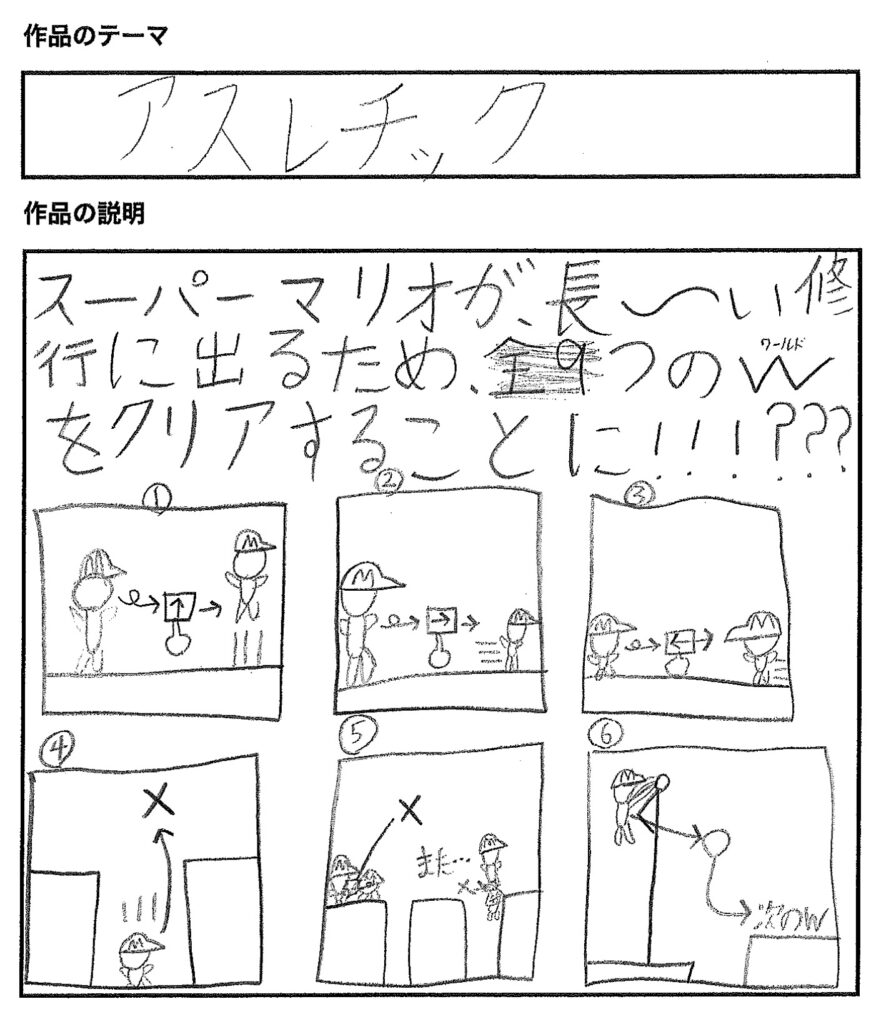 作品のテーマ
アスレチック
作品の説明
スーパーマリオが、長〜い修
行に出るため、全9つのW
ワールド
をクリアすることに!!!???
①
②
③
M
↑
M
M
→
M
M
←
M
④
⑤
⑥
×
M
×
また…
×
M
次のW